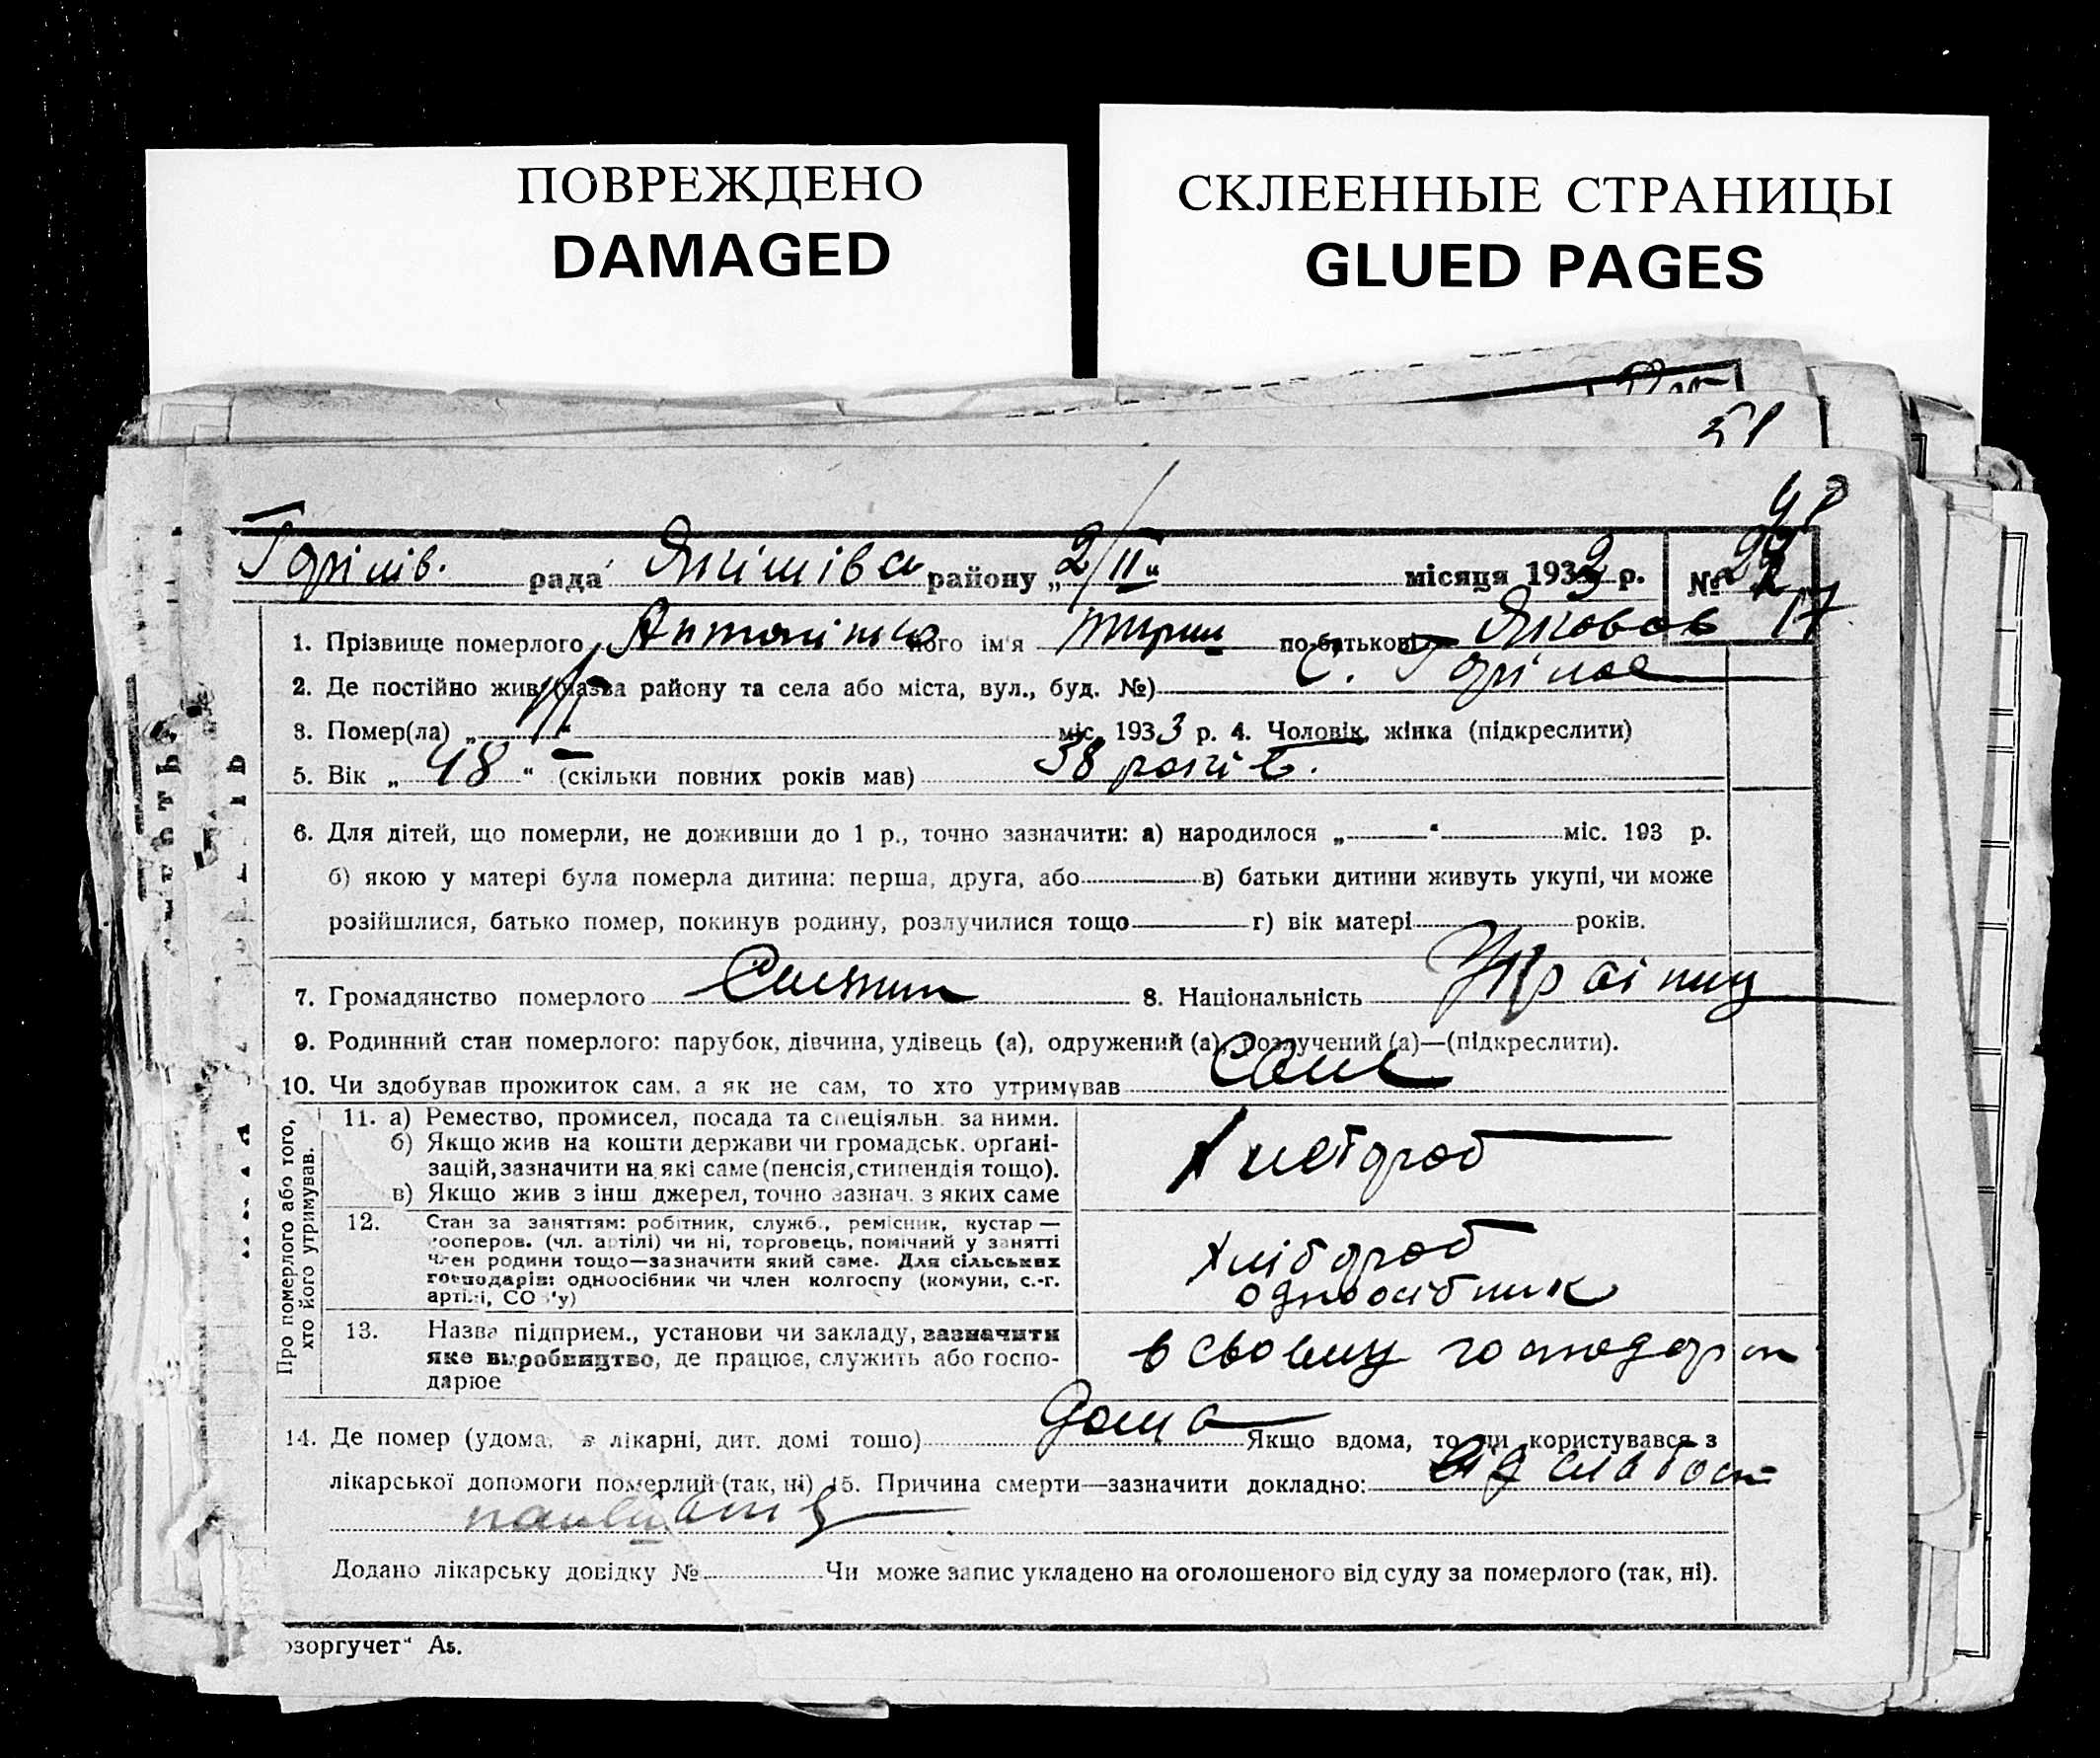 ПОВРЕЖДЕНО
DAMAGED
СКЛЕЕННЫЕ СТРАНИЦЫ
GLUED PAGES
51
рада районy „2/II“ місяця 1933 р. №
17
1. Прізвище померлого його ім'я по-батькові Яковов
2. Де постійно жив (назва району та села або міста, вул., буд. №) С.
3. Помер(ла) „ “ міс. 1933 р. 4. Чоловік, жінка (підкреслити)
5. Вік „48“ (скільки повних років мав) 58 років.
6. Для дітей, що померли, не доживши до 1 р., точно зазначити: а) народилося „ “ міс. 193 р.
б) якою у матері була померла дитина: перша, друга, або в) батьки дитини живуть укупі, чи може
розійшлися, батько помер, покинув родину, розлучилися тощо г) вік матері років.
7. Громадянство померлого 8. Національність Українц
9. Родинний стан померлого: парубок, дівчина, удівець (а), одружений (а), розлучений (а)—(підкреслити).
10. Чи здобував прожиток сам, а як не сам, то хто утримував Сам
Про померлого або того,
хто його утримував.
11. а) Ремество, промисел, посада та спеціяльн. за ними.
б) Якщо жив на кошти держави чи громадськ. орґані-
зацій, зазначити на які саме (пенсія, стипендія тощо).
в) Якщо жив з інш джерел, точно зазнач. з яких саме
Хлібороб
12. Стан за заняттям: робітник, служб., ремісник, кустар —
кооперов. (чл. артілі) чи ні, торговець, помічний у занятті
член родини тощо—зазначити який саме. Для сільських
господарів: одноосібник чи член колгоспу (комуни, с.-г.
артілі, СО 'у)
Хлібороб
одноосібник
13. Назва підприєм., установи чи закладу, зазначити
яке виробництво, де працює, служить або госпо-
дарює
в своєму господарст
14. Де помер (удома, в лікарні, дит. домі тощо) Дома Якщо вдома, то чи користувався з
лікарської допомоги померлий (так, ні) 15. Причина смерти—зазначити докладно: від слабост
Додано лікарську довідку № Чи може запис укладено на оголошеного від суду за померлого (так, ні).
озоргучет" А5.